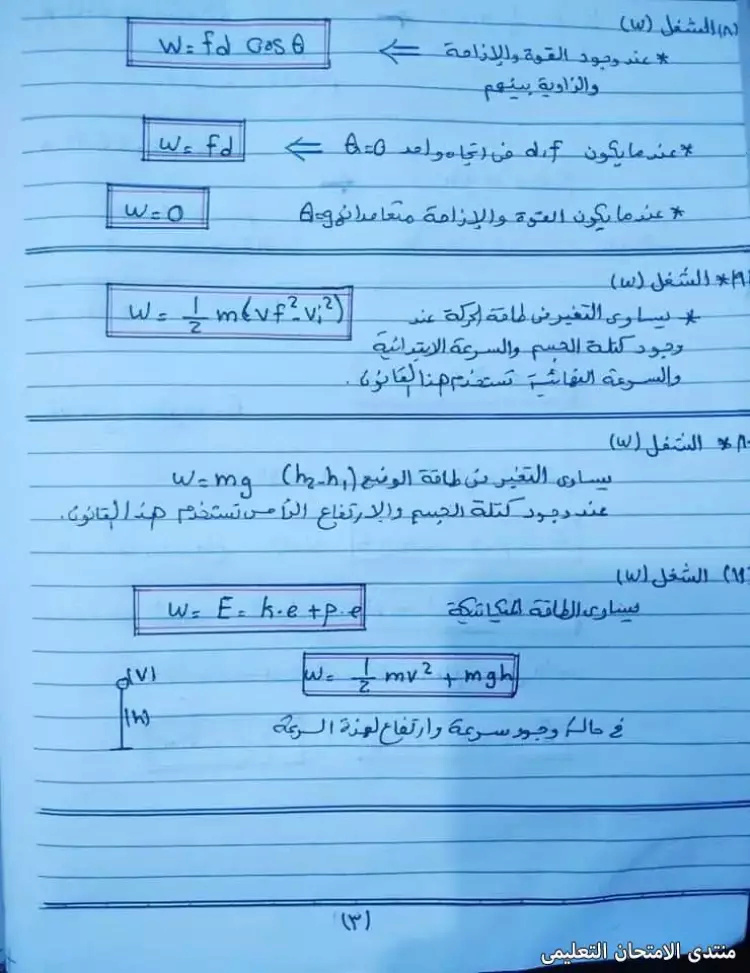 (١٨ الشغل (W)
* عند وجود القوة والإزاحة ⇐ W = fd Cos θ
والزاوية بينهم
* عندما يكون d, f في اتجاه واحد θ=0 ⇐ W = fd
* عندما يكون القوة والإزاحة متعامدان θ=90 W = 0
(١٩* الشغل (W)
* يساوى التغير فى طاقة الحركة عند W = 1/2 m(vf² - vi²)
وجود كتلة الجسم والسرعة الابتدائية
والسرعة النهائية تستخدم هذا القانون.
* الشغل (W)
يساوى التغير فى طاقة الوضع W = mg (h₂-h₁)
عند وجود كتلة الجسم والارتفاع الرأسى تستخدم هذا القانون.
الشغل (W)
يساوى الطاقة الميكانيكية W = E = k.e + p.e
W = 1/2 mv² + mgh
(V)
(h)
فى حالة وجود سرعة وارتفاع لهذة السرعة
(٣)
منتدى الامتحان التعليمى